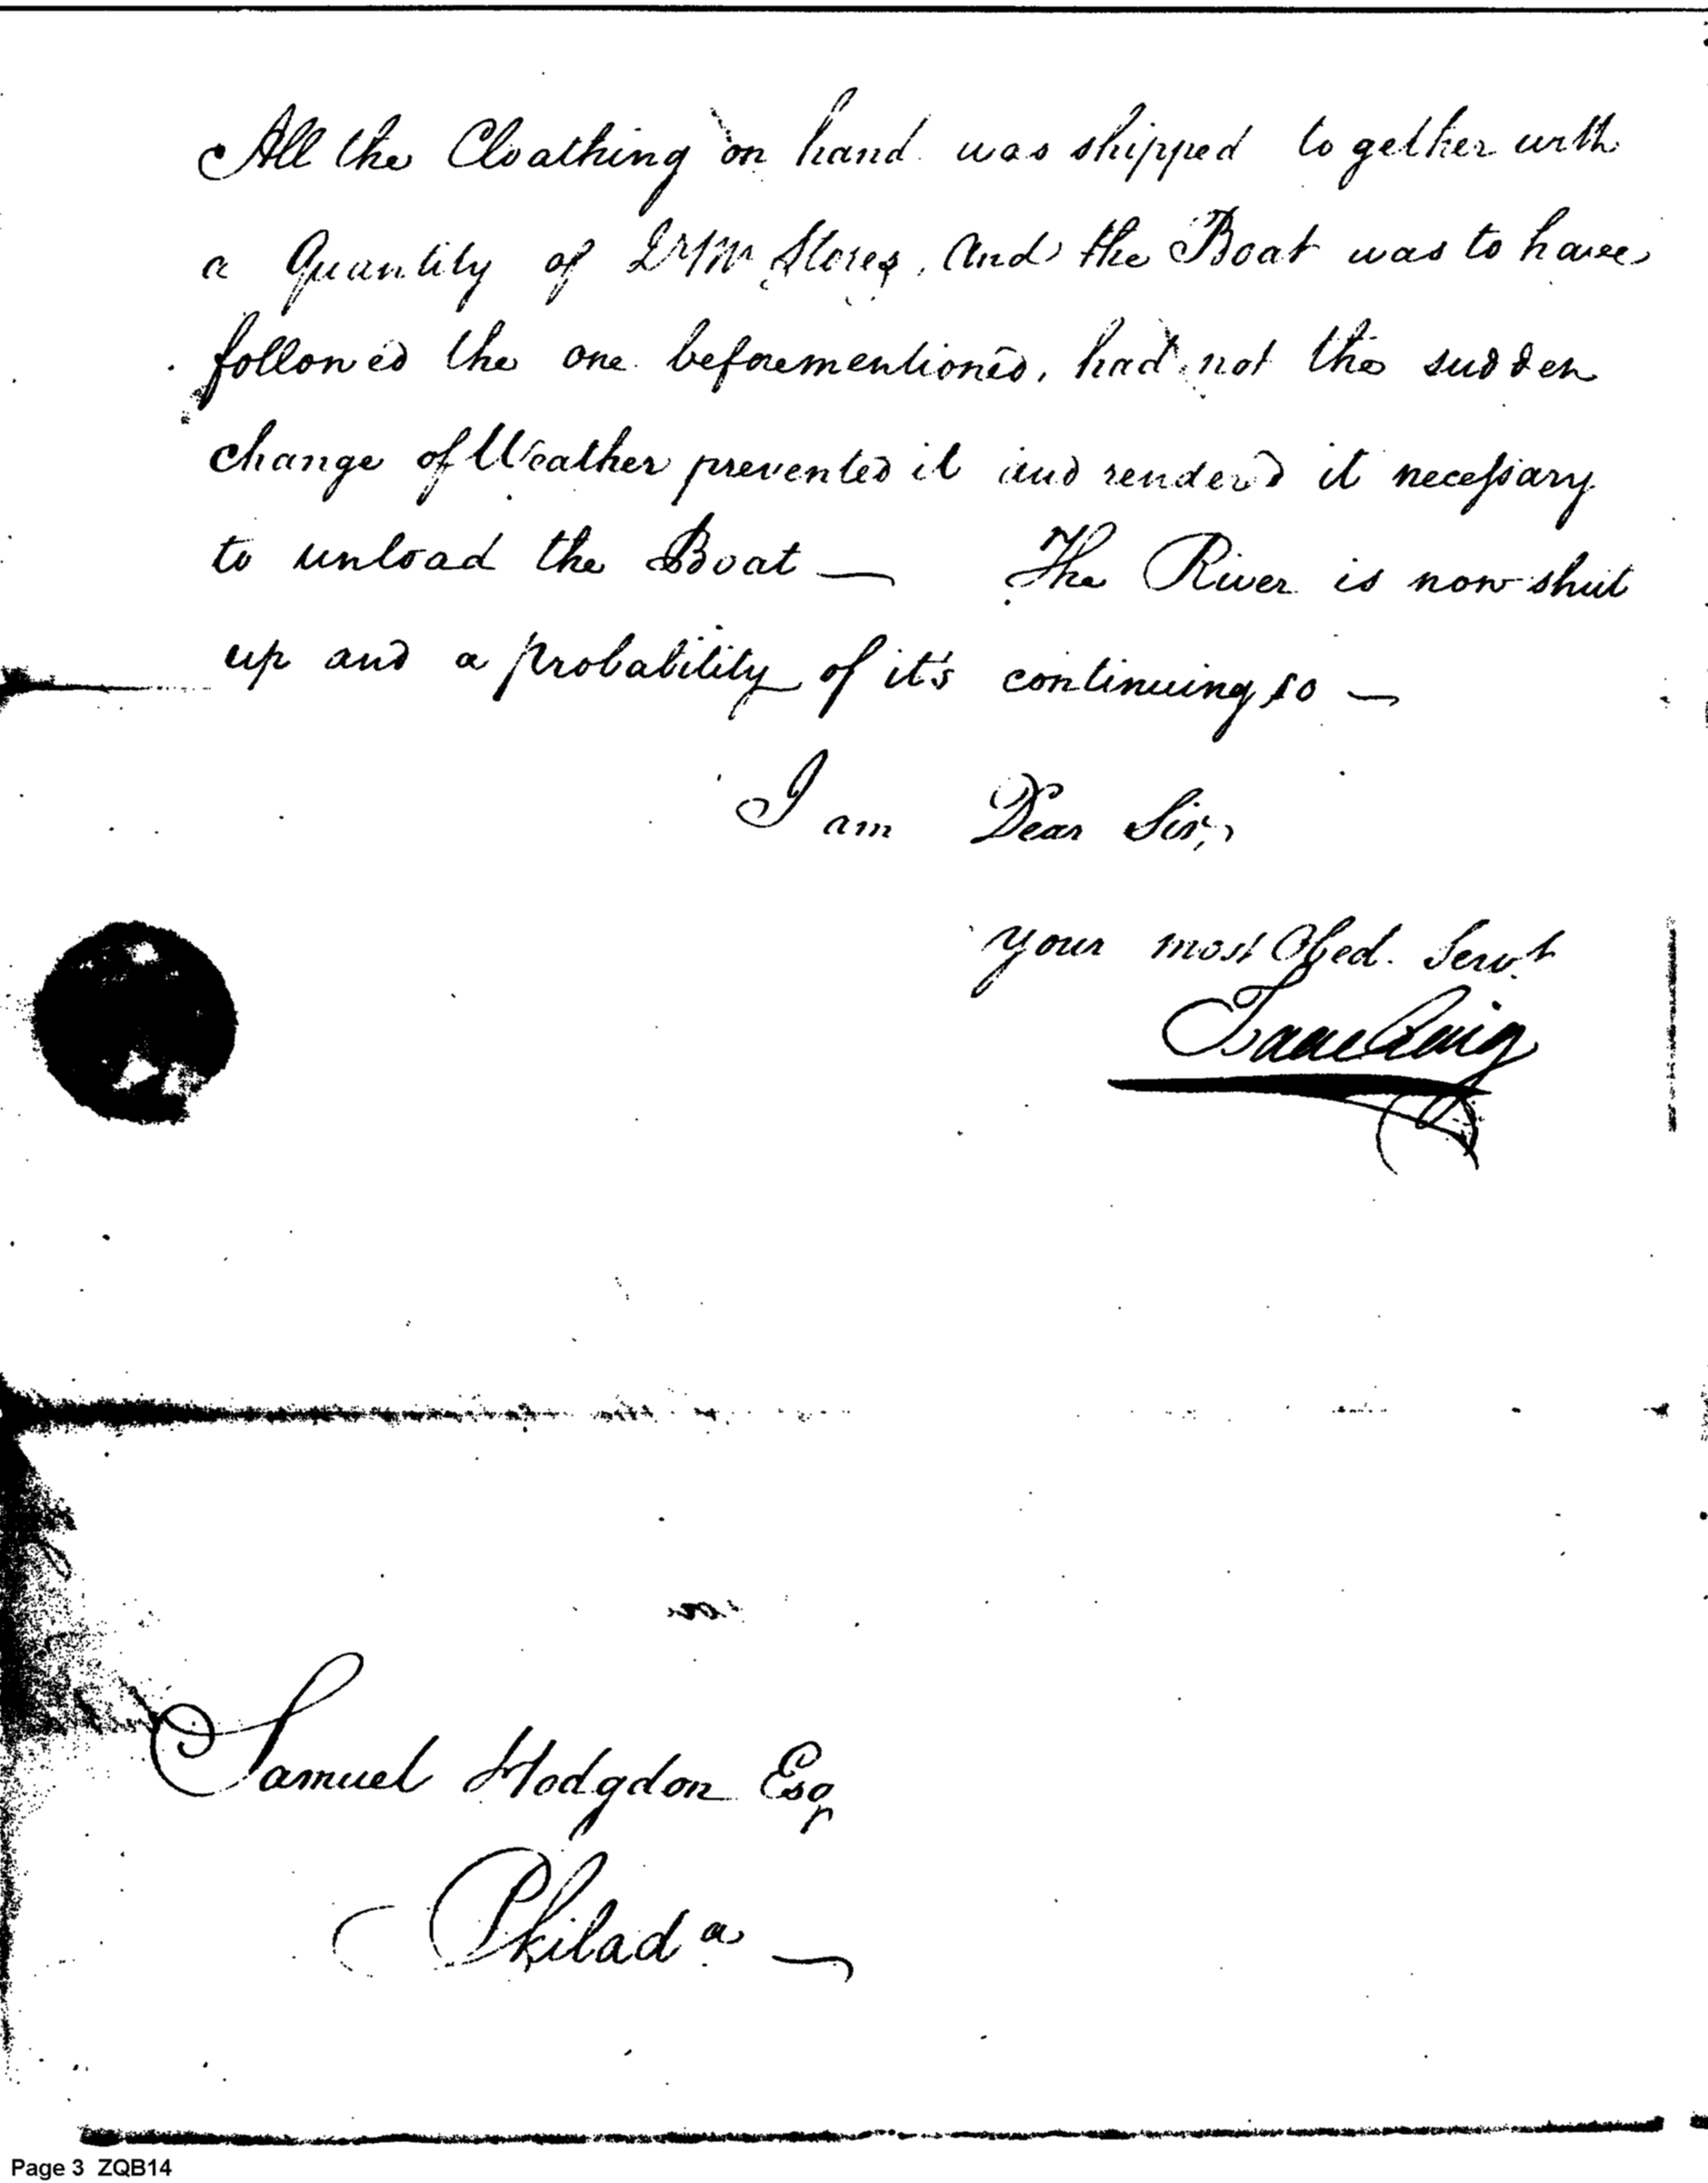 All the Cloathing on hand was shipped together with
a Quantity of QrMr Stores, and the Boat was to have
followed the one beforementioned, had not the sudden
change of Weather prevented it and render'd it necessary
to unload the Boat — The River is now shut
up and a probability of it's continuing so —
I am Dear Sir,
your most Obed. Servt
Isaac Craig
Samuel Hodgdon Esqr
Philada —
Page 3 ZQB14